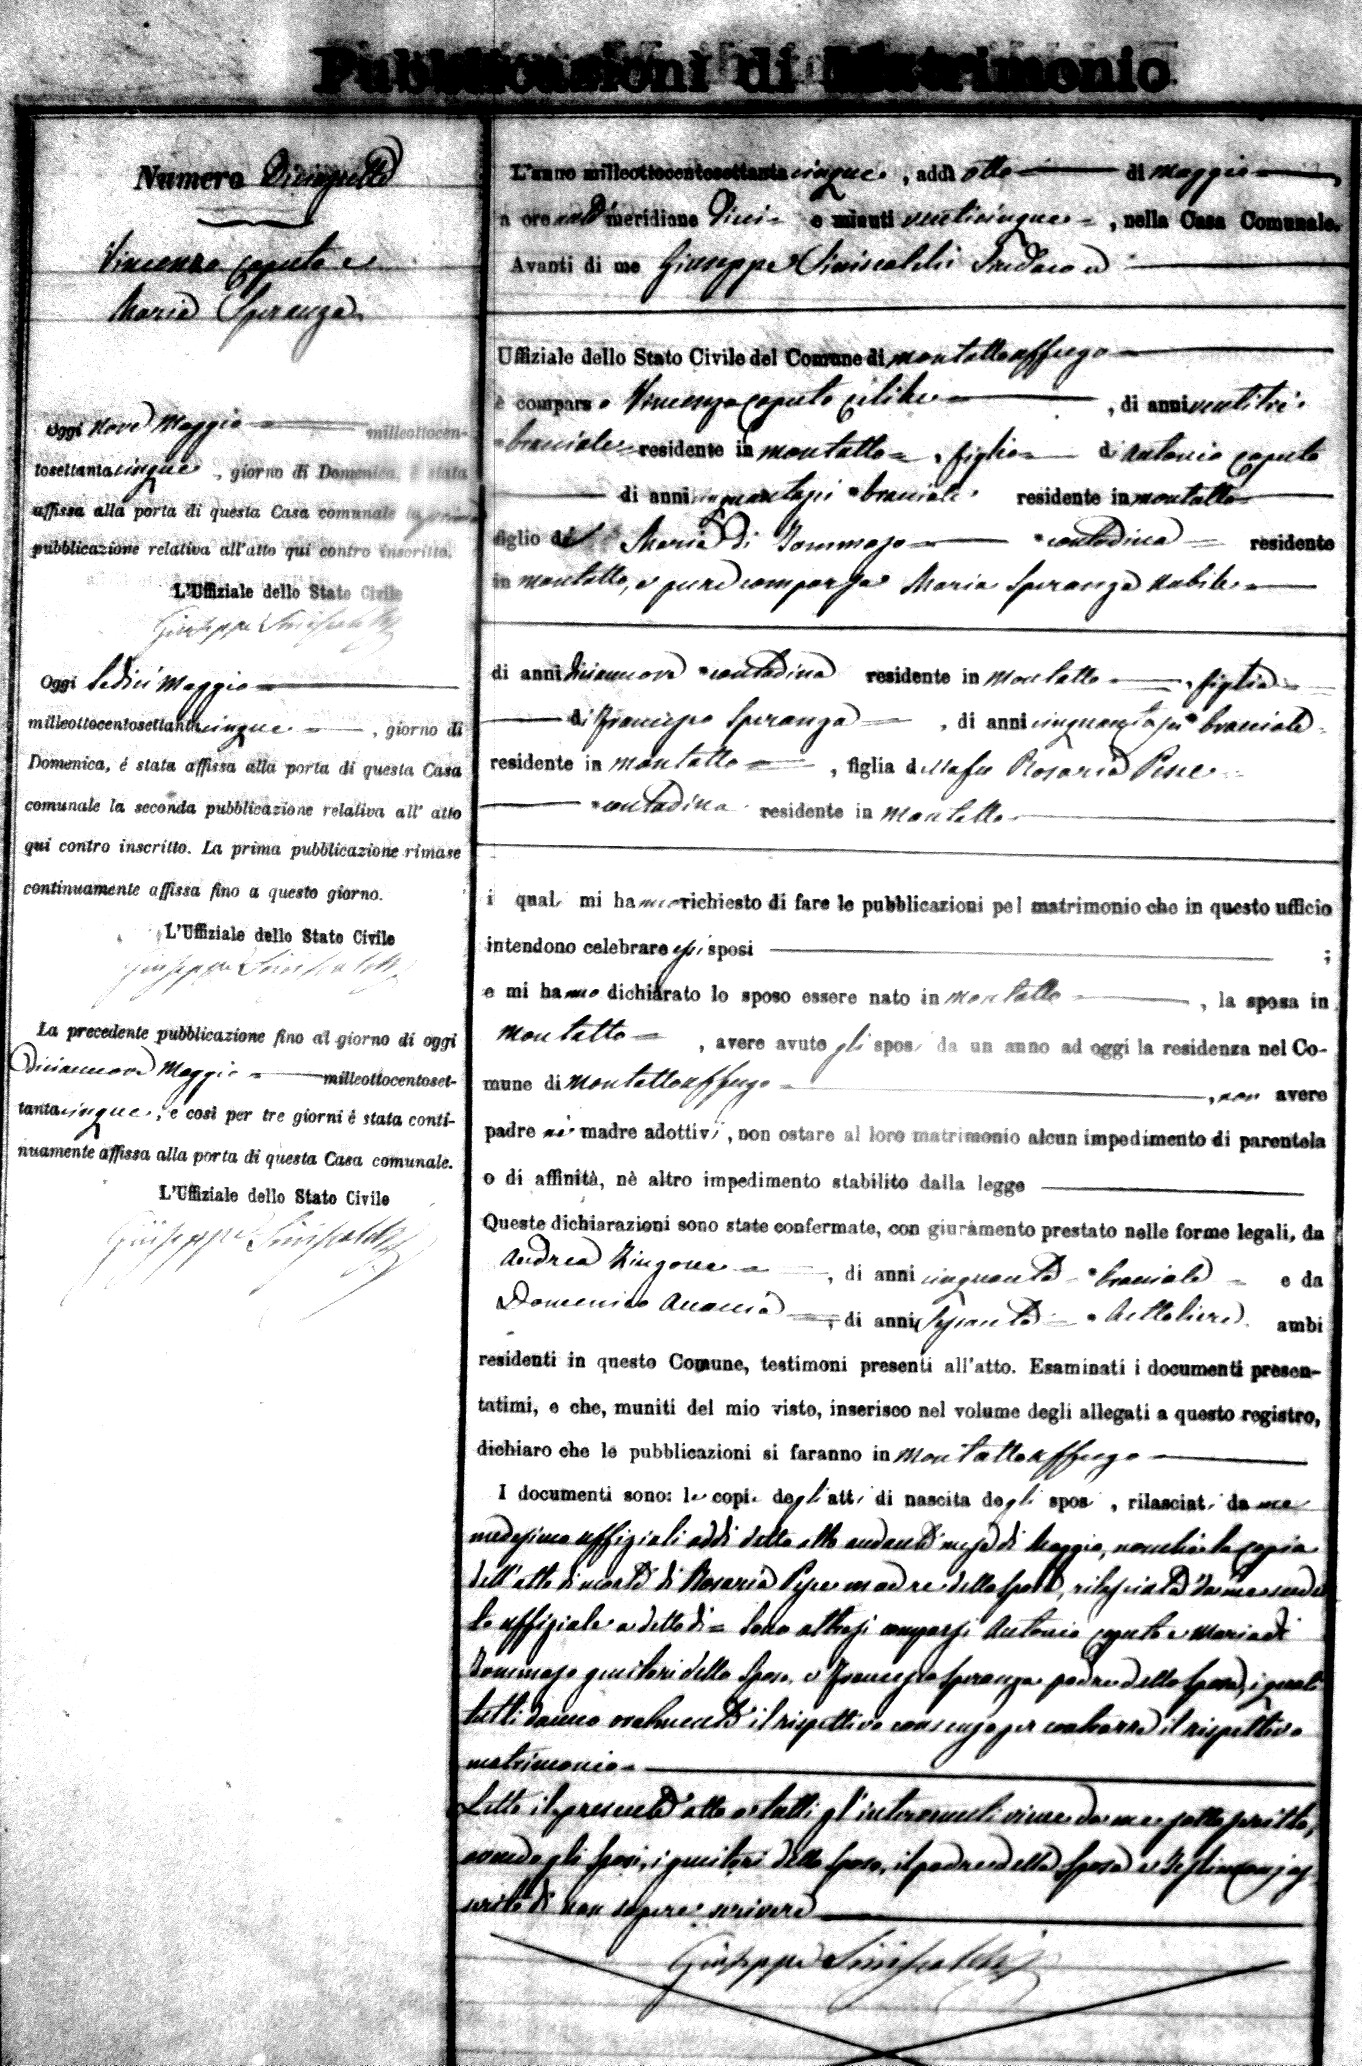 Pubblicazioni di Matrimonio
Numero Diciassette
Vincenzo Caputo e
Maria Speranza
Oggi nove Maggio milleottocen-
tosettantacinque, giorno di Domenica, è stata
affissa alla porta di questa Casa comunale la prima
pubblicazione relativa all'atto qui contro inscritto.
L'Uffiziale dello Stato Civile
Giuseppe Siniscalchi
Oggi sedici Maggio
milleottocentosettantacinque, giorno di
Domenica, é stata affissa alla porta di questa Casa
comunale la seconda pubblicazione relativa all' atto
qui contro inscritto. La prima pubblicazione rimase
continuamente affissa fino a questo giorno.
L'Uffiziale dello Stato Civile
Giuseppe Siniscalchi
La precedente pubblicazione fino al giorno di oggi
diciannove Maggio milleottocentoset-
tantacinque, e così per tre giorni é stata conti-
nuamente affissa alla porta di questa Casa comunale.
L'Uffiziale dello Stato Civile
Giuseppe Siniscalchi
L'anno milleottocentosettantacinque, addì otto di Maggio
a ore antimeridiane dieci e minuti venticinque, nella Casa Comunale.
Avanti di me Giuseppe Siniscalchi Sindaco ed
Uffiziale dello Stato Civile del Comune di Montaltouffugo
è comparso Vincenzo Caputo celibe, di anni ventitrè
bracciale residente in Montalto, figlio di Antonio Caputo
di anni cinquantasei bracciale residente in Montalto
figlio di Maria di Tommaso contadina residente
in Montalto, e pure comparsa Maria Speranza nubile
di anni diciannove contadina residente in Montalto, figlia
di Francesco Speranza, di anni cinquantasei bracciale
residente in Montalto, figlia della fu Rosaria Pepe
contadina residente in Montalto
i quali mi hanno richiesto di fare le pubblicazioni pel matrimonio che in questo ufficio
intendono celebrare essi sposi ;
e mi hanno dichiarato lo sposo essere nato in Montalto, la sposa in
Montalto, avere avuto gli sposi da un anno ad oggi la residenza nel Co-
mune di Montaltouffugo, non avere
padre nè madre adottivi, non ostare al loro matrimonio alcun impedimento di parentela
o di affinità, nè altro impedimento stabilito dalla legge
Queste dichiarazioni sono state confermate, con giuramento prestato nelle forme legali, da
Andrea Zingone, di anni cinquanta bracciale e da
Domenico Anania, di anni sessanta bettoliere ambi
residenti in questo Comune, testimoni presenti all'atto. Esaminati i documenti presen-
tatimi, e che, muniti del mio visto, inserisco nel volume degli allegati a questo registro,
dichiaro che le pubblicazioni si faranno in Montaltouffugo
I documenti sono: le copie degli atti di nascita degli sposi, rilasciati da me
medesimo uffiziali addì detto otto andante mese di Maggio, nonchè la copia
dell'atto di morte di Rosaria Pepe madre della sposa, rilasciata da me sud
to uffiziale a detto dì = Sono altresì comparsi Antonio Caputo e Maria di
Tommaso genitori dello sposo, e Francesco Speranza padre della sposa, i quali
tutti danno oralmente il rispettivo consenso per contrarre il rispettivo
matrimonio
Letto il presente atto a tutti gl'intervenuti viene da me sottoscritto,
avendo gli sposi, i genitori dello sposo, il padre della sposa e testimoni as
serito di non sapere scrivere
Giuseppe Siniscalchi